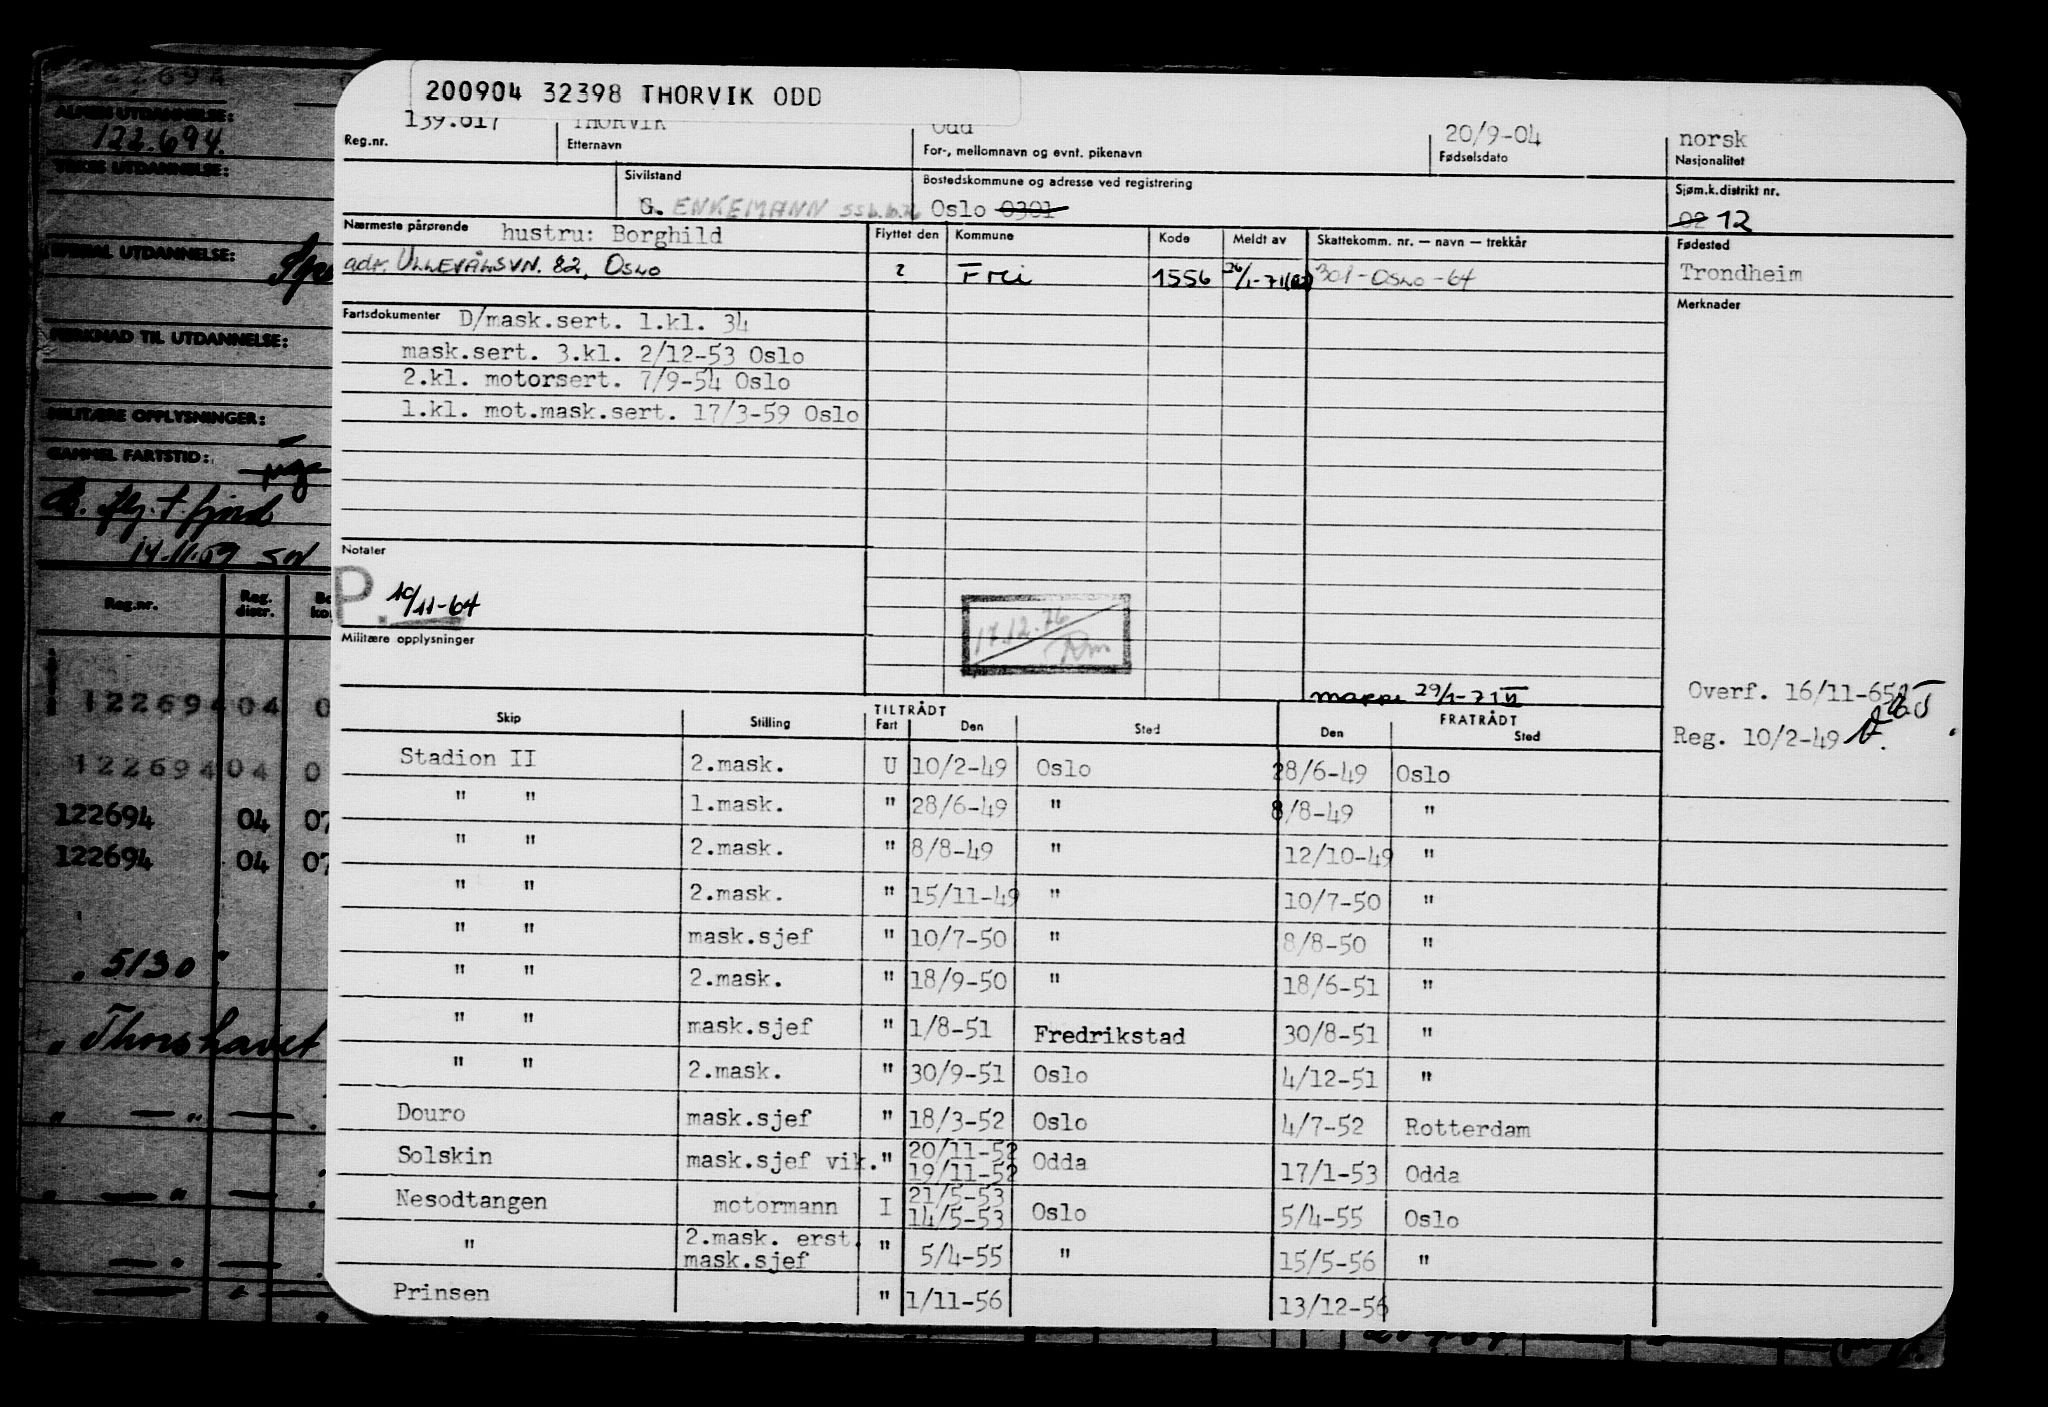 200904 32398 THORVIK ODD
139.617 THORVIK Odd 20/9-04 norsk
Reg.nr. Etternavn For-, mellomnavn og evnt. pikenavn Fødselsdato Nasjonalitet
Sivilstand Bostedskommune og adresse ved registrering Sjøm.k.distrikt nr.
G. ENKEMANN Oslo 0301 02 12
Nærmeste pårørende hustru: Borghild Flyttet den Kommune Kode Meldt av Skattekomm. nr. — navn — trekkår Fødested
adr. ULLEVÅLSVN. 82, OSLO ? Frei 1556 26/1-71 301-OSLO-64 Trondheim
Merknader
Fartsdokumenter D/mask.sert. 1.kl. 34
mask.sert. 3.kl. 2/12-53 Oslo
2.kl. motorsert. 7/9-54 Oslo
1.kl. mot.mask.sert. 17/3-59 Oslo
Notater
P. 10/11-64
17.12.76
Militære opplysninger
29/1-71
Overf. 16/11-65
Reg. 10/2-49
TILTRÅDT FRATRÅDT
Skip Stilling Fart Den Sted Den Sted
Stadion II 2.mask. U 10/2-49 Oslo 28/6-49 Oslo
" " 1.mask. " 28/6-49 " 8/8-49 "
" " 2.mask. " 8/8-49 " 12/10-49 "
" " 2.mask. " 15/11-49 " 10/7-50 "
" " mask.sjef " 10/7-50 " 8/8-50 "
" " 2.mask. " 18/9-50 " 18/6-51 "
" " mask.sjef " 1/8-51 Fredrikstad 30/8-51 "
" " 2.mask. " 30/9-51 Oslo 4/12-51 "
Douro mask.sjef " 18/3-52 Oslo 4/7-52 Rotterdam
Solskin mask.sjef vik. " 20/11-52 19/11-52 Odda 17/1-53 Odda
Nesodtangen motormann I 21/5-53 14/5-53 Oslo 5/4-55 Oslo
" 2.mask. erst. mask.sjef " 5/4-55 " 15/5-56 "
Prinsen " 1/11-56 13/12-56
ALMEN UTDANNELSE:
122.694.
UTDANNELSE:
SPESIAL UTDANNELSE:
MERKNAD TIL UTDANNELSE:
MILITÆRE OPPLYSNINGER:
GAMMEL FARTSTID:
14-11-59
Reg.nr. Reg. distr.
122694 04 0
122694 04 0
122694 04 07
122694 04 07
" 5130 "
" Thorshavet
" — " —
— " —